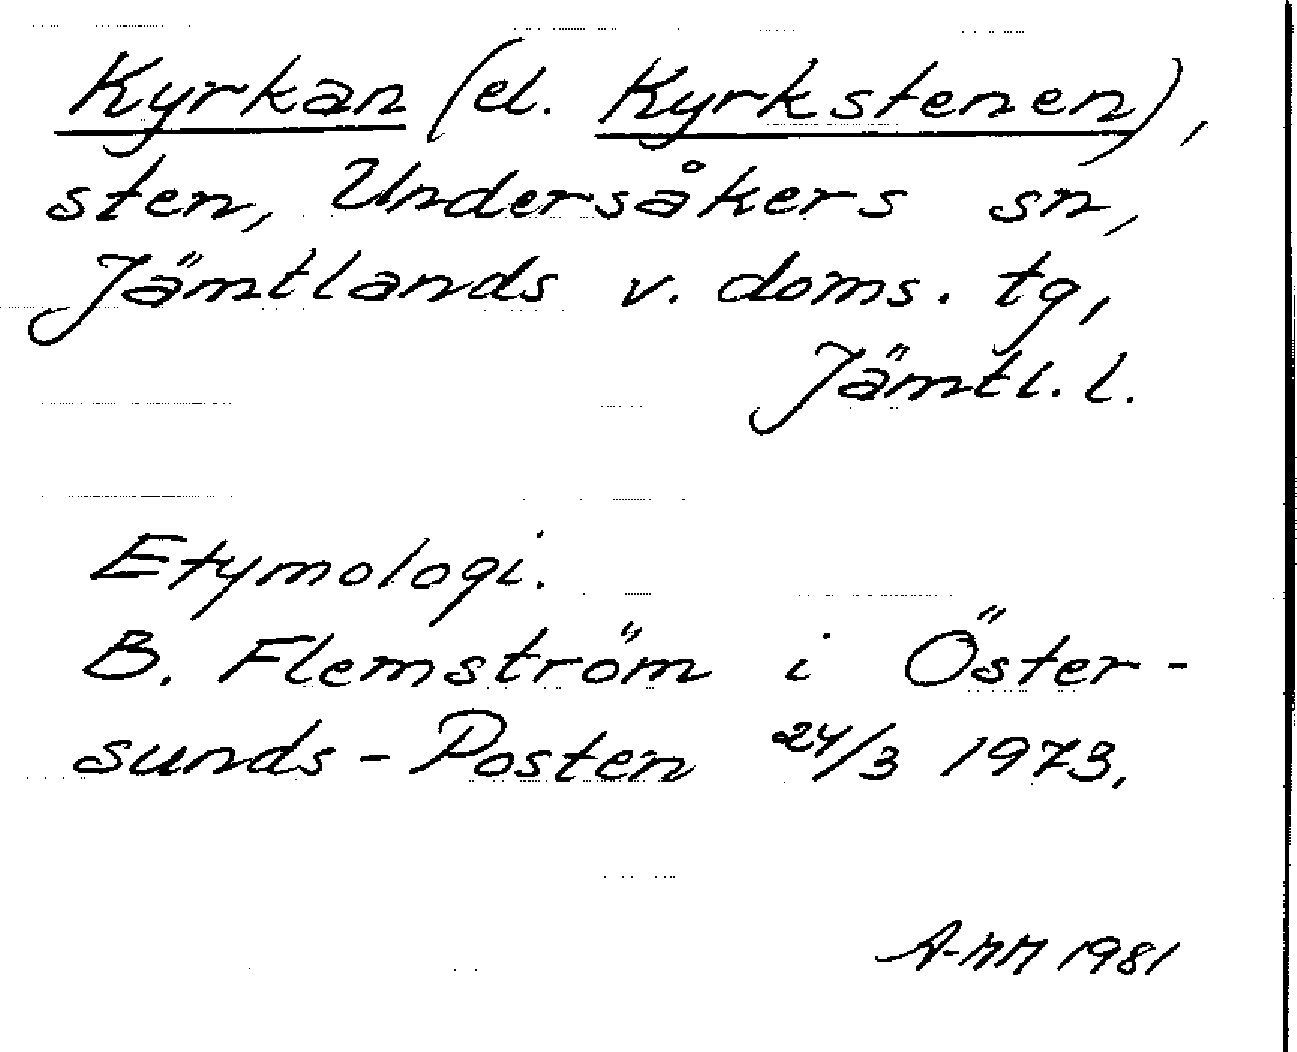 Kyrkan (el. Kyrkstenen),
sten, Undersåkers sn,
Jämtlands v. doms. tg,
Jämtl. l.
Etymologi.
B. Flemström i Öster-
sunds-Posten 24/3 1973.
A-MM 1981